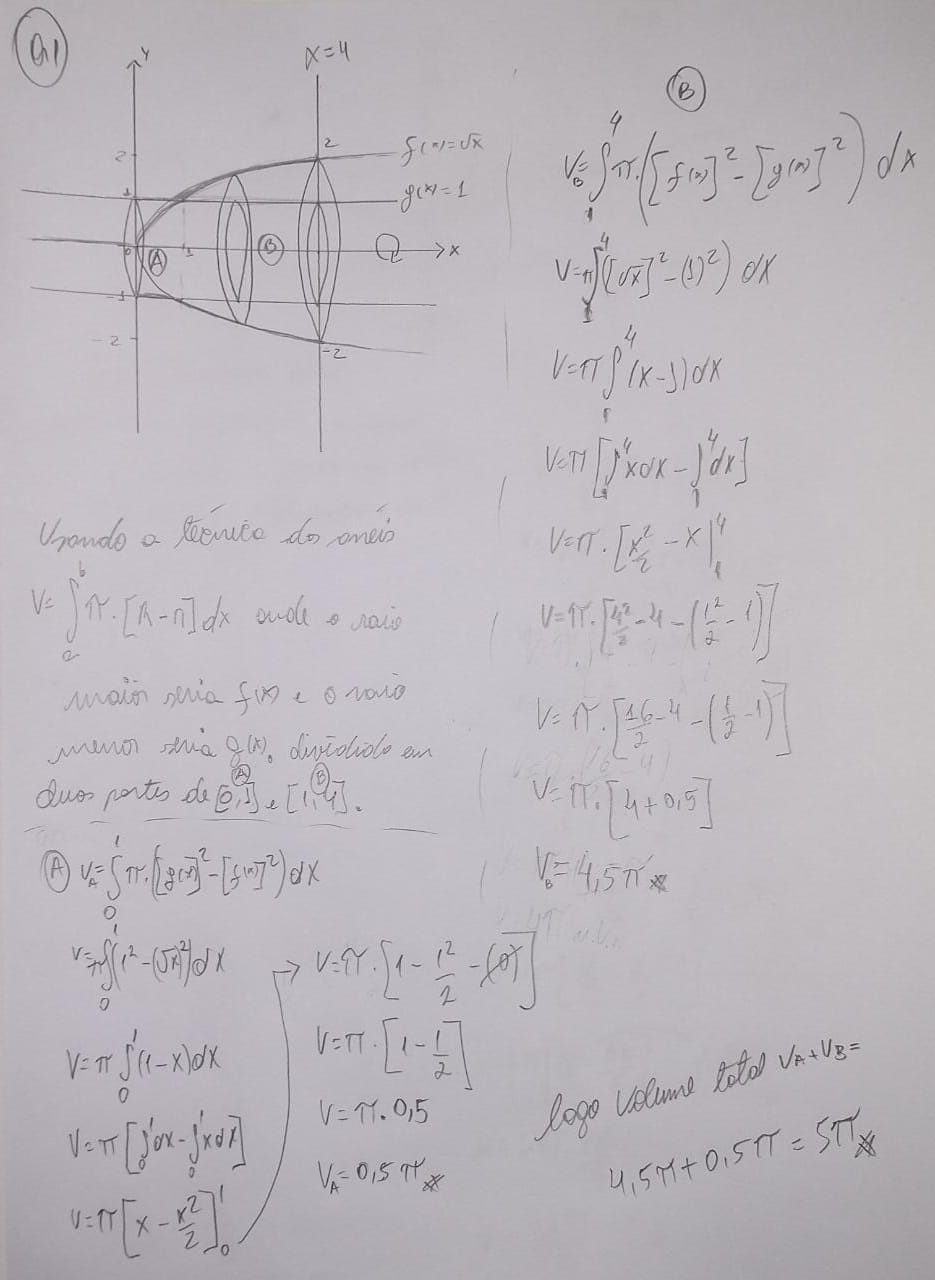 Q1
y
x=4
2
2
f(x)=√x
1
g(x)=1
0
A
1
B
x
-1
-2
-2
Usando a técnica dos anéis
V= ∫_a^b π.[R-r]dx onde o raio
maior seria f(x) e o raio
menor seria g(x), dividido em
A B
duas partes de [0,1] e [1,4].
A V_A= ∫_0^1 π.([g(x)]²-[f(x)]²)dx
V=π∫_0^1(1²-(√x)²)dx
V=π ∫_0^1(1-x)dx
V=π[∫_0^1dx-∫_0^1xdx]
V=π[x-x²/2]_0^1
→ V=π.[1-1²/2-(0)]
V=π.[1-1/2]
V=π.0,5
V_A=0,5π
B
V_B=∫_1^4 π.([f(x)]²-[g(x)]²)dx
V=π∫_1^4([√x]²-(1)²)dx
V=π∫_1^4(x-1)dx
V=π[∫_1^4xdx-∫_1^4dx]
V=π.[x²/2-x|_1^4
V=π.[4²/2-4-(1²/2-1)]
V=π.[16/2-4-(1/2-1)]
V=π.[4+0,5]
V_B=4,5π
logo volume total V_A+V_B=
4,5π+0,5π=5π